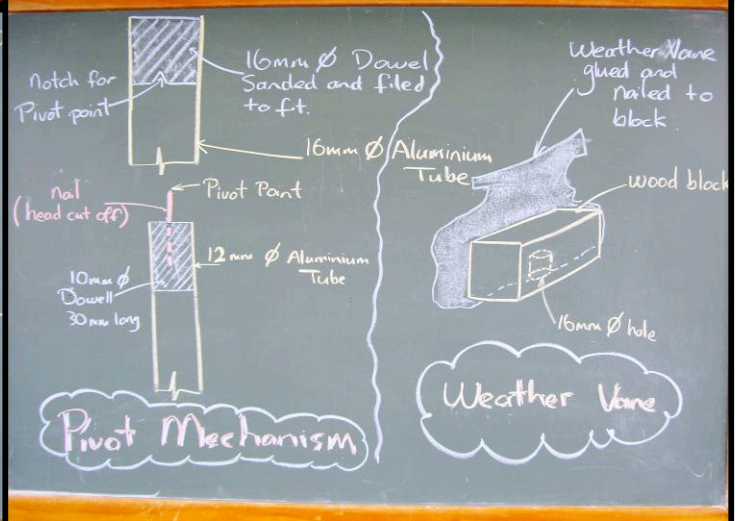 notch for
Pivot point
16mm Ø Dowel
Sanded and filed
to ft.
16mm Ø Aluminium
Tube
nal
(head cut off)
Pivot Point
12mm Ø Aluminium
Tube
10mm Ø
Dowell
30mm long
Pivot Mechanism
Weather Vane
glued and
nailed to
block.
wood block
16mm Ø hole
Weather Vane